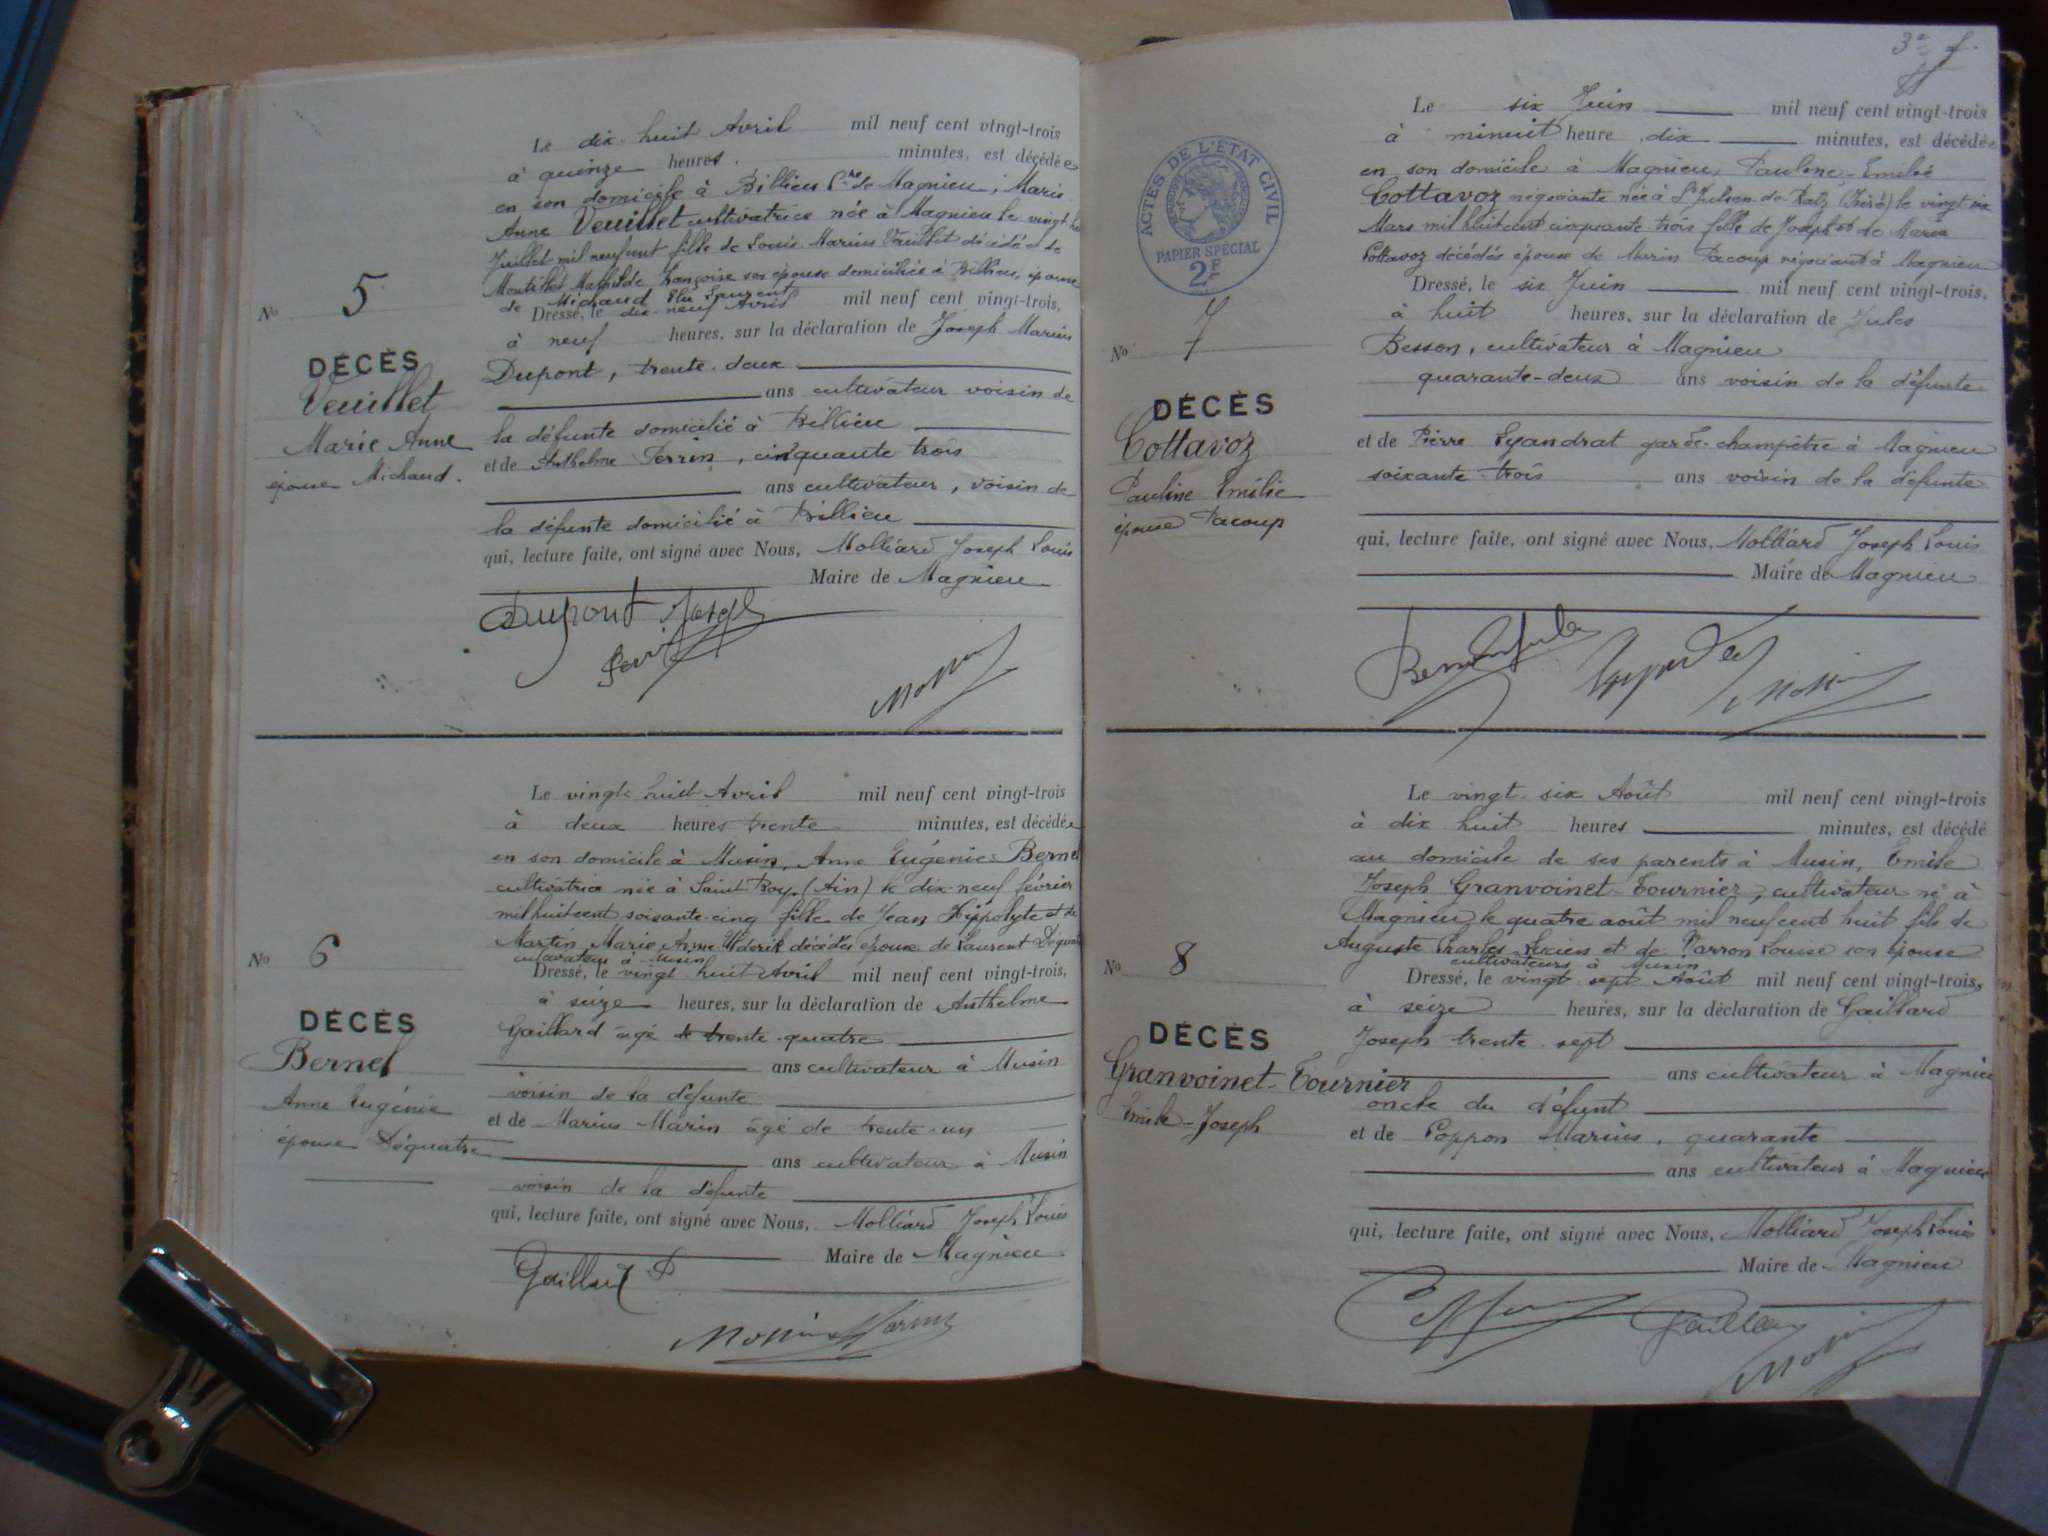 Le dix-huit Avril mil neuf cent vingt-trois
à quinze heures minutes, est décédée
en son domicile à Billieu Cne de Magnieu, Marie
Anne Veuillet cultivatrice née à Magnieu le vingt
Juillet mil neuf cent fille de Louis Marius Veuillet décédé et de
Montillet Mathilde Françoise son épouse domiciliée à Billieu, épouse
de Michaud Laurent
Dressé, le dix-neuf Avril mil neuf cent vingt-trois,
No 5
à neuf heures, sur la déclaration de Joseph Marius
DÉCÈS
Dupont, trente-deux
Veuillet
ans cultivateur voisin de
Marie Anne
la défunte domicilié à Billieu
épouse Michaud.
et de Anthelme Perrin, cinquante trois
ans cultivateur, voisin de
la défunte domicilié à Billieu
qui, lecture faite, ont signé avec Nous, Molliard Joseph Louis
Maire de Magnieu
Dupont Joseph
Le vingt huit Avril mil neuf cent vingt-trois
à deux heures trente minutes, est décédée
en son domicile à Musin, Anne Eugénie Bernel
cultivatrice née à Saint (Ain) le dix-neuf février
mil huit cent soixante-cinq fille de Jean Hippolyte et de
Martin Marie Anne décédés épouse de Laurent Déquatre
cultivateur à Musin
No 6
Dressé, le vingt huit Avril mil neuf cent vingt-trois,
à seize heures, sur la déclaration de Anthelme
DÉCÈS
Gaillard âgé de trente-quatre
Bernel
ans cultivateur à Musin
Anne Eugénie
voisin de la défunte
épouse Déquatre
et de Marius Marin âgé de trente-un
ans cultivateur à Musin
voisin de la défunte
qui, lecture faite, ont signé avec Nous, Molliard Joseph Louis
Maire de Magnieu
Gaillard
Marius
3e f.
ACTES DE L'ÉTAT CIVIL
PAPIER SPÉCIAL
2F
Le six Juin mil neuf cent vingt-trois
à minuit heure dix minutes, est décédée
en son domicile à Magnieu, Pauline-Emilie
Cottavoz négociante née à St Julien-de-Ratz (Isère) le vingt six
Mars mil huit cent cinquante-trois fille de Joseph et de Marie
Cottavoz décédés épouse de Marin Pacoup négociant à Magnieu
Dressé, le six Juin mil neuf cent vingt-trois,
No 7
à huit heures, sur la déclaration de Jules
Besson, cultivateur à Magnieu
DÉCÈS
quarante-deux ans voisin de la défunte
Cottavoz
Pauline Emilie
épouse Pacoup
et de Pierre garde-champêtre à Magnieu
soixante-trois ans voisin de la défunte
qui, lecture faite, ont signé avec Nous, Molliard Joseph Louis
Maire de Magnieu
Le vingt-six Août mil neuf cent vingt-trois
à dix huit heures minutes, est décédé
au domicile de ses parents à Musin, Emile
Joseph Granvoinet-Tournier, cultivateur né à
Magnieu le quatre août mil neuf cent huit fils de
Auguste Charles Lucien et de Varron Louise son épouse
cultivateurs à Musin
No 8
Dressé, le vingt-sept Août mil neuf cent vingt-trois,
à seize heures, sur la déclaration de Gaillard
DÉCÈS
Joseph trente-sept
Granvoinet-Tournier
ans cultivateur à Magnieu
Emile-Joseph
oncle du défunt
et de Poppon Marius, quarante
ans cultivateur à Magnieu
qui, lecture faite, ont signé avec Nous, Molliard Joseph Louis
Maire de Magnieu
Gaillard